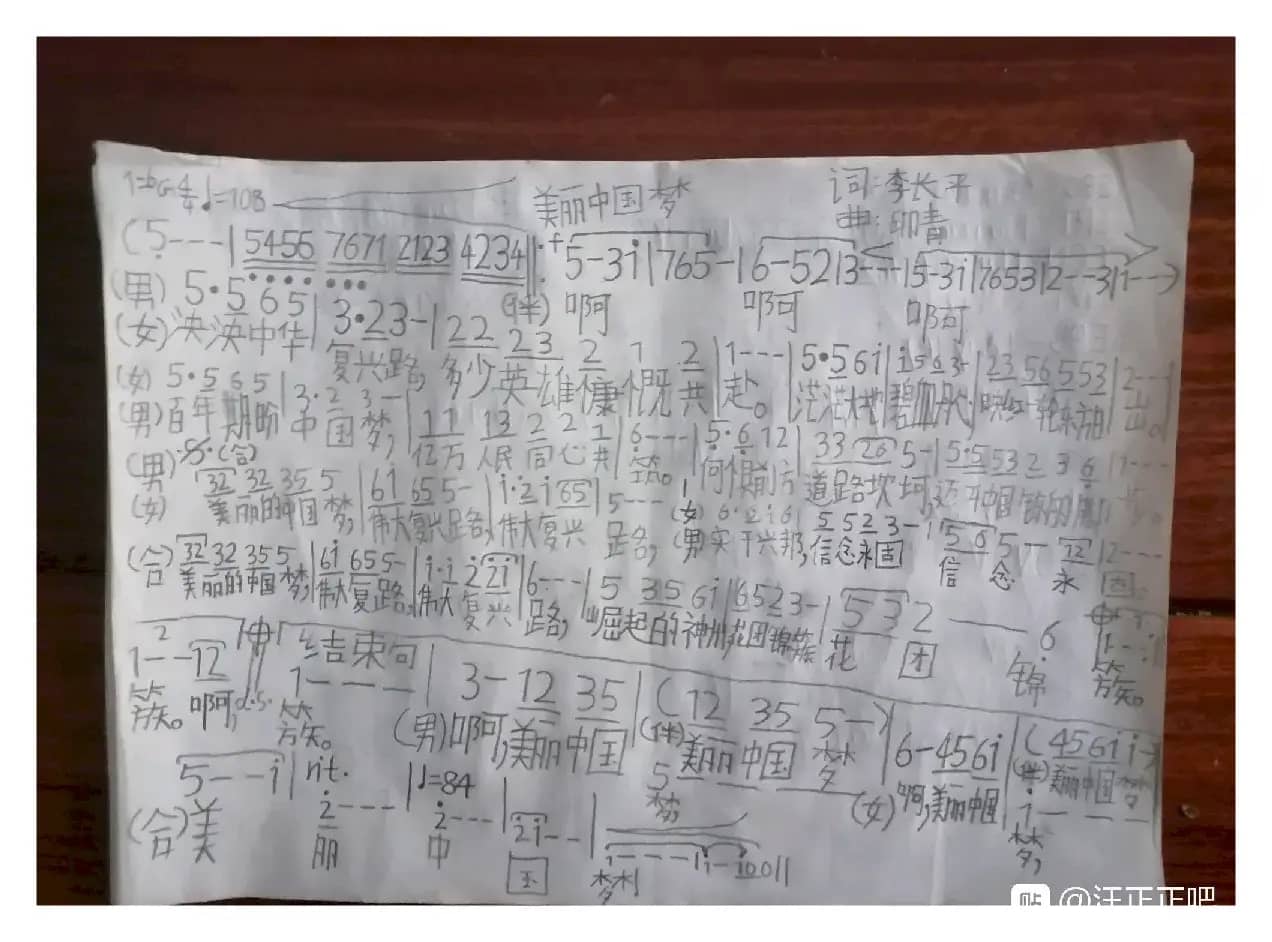 1=bG 4/4 ♩=108 美丽中国梦 词:李长平
曲:印青
(5---|5456 7671 2123 4234‖: 5-3i|765-|6-52|3---|5-3i|7653|2--3|1---)
(伴) 啊 啊 啊
(男) 5·5 6 5|3·2 3-|22 23 2 1 2|1---|5·5 6i|i 5 6 3-|23 56 5 53|2---|
(女) 泱泱中华 复兴路, 多少英雄慷慨共赴。 茫茫大地碧血丹心, 轮东方出。
(女) 5·5 6 5|3·2 3-|11 13 2 2 1|6---|5·6 12|33 26 5-|5·5 53 2 3 6|1---
(男) 百年期盼中国梦, 亿万人民同心共筑。 何惧前方道路坎坷, 中国
(男)·𝄋·(合)
32 32 35 5|6i 65 5-|i·2 i 65|5---|6·2i6|5 52 3-|56 5-12|2---
(女) 美丽的中国梦, 伟大复兴路, 伟大复兴路, (女)(男)实干兴邦, 信念永固 信念永固。
(合) 32 32 35 5-|6i 65 5-|i·i 2 2i|6---|5 35 6i|6523-|53 2——6|1--i
美丽的中国梦, 伟大复兴路, 伟大复兴路, 崛起的神州, 花团锦簇 花团锦簇。
2 结束句
1--12 1---|3-12 35|(12 35 5-)|6-456i|(456i i-)
簇。啊, d.s. 簇。 (男)啊,美丽中国 (伴)美丽中国梦 (女)啊,美丽中国 (伴)美丽中国梦
5--- 1---
梦, 梦,
5--i|rit. 2---|♩=84 2---|2i--|i---|i-i00‖
(合)美 丽 中 国 梦!
贴 @汪正正吧